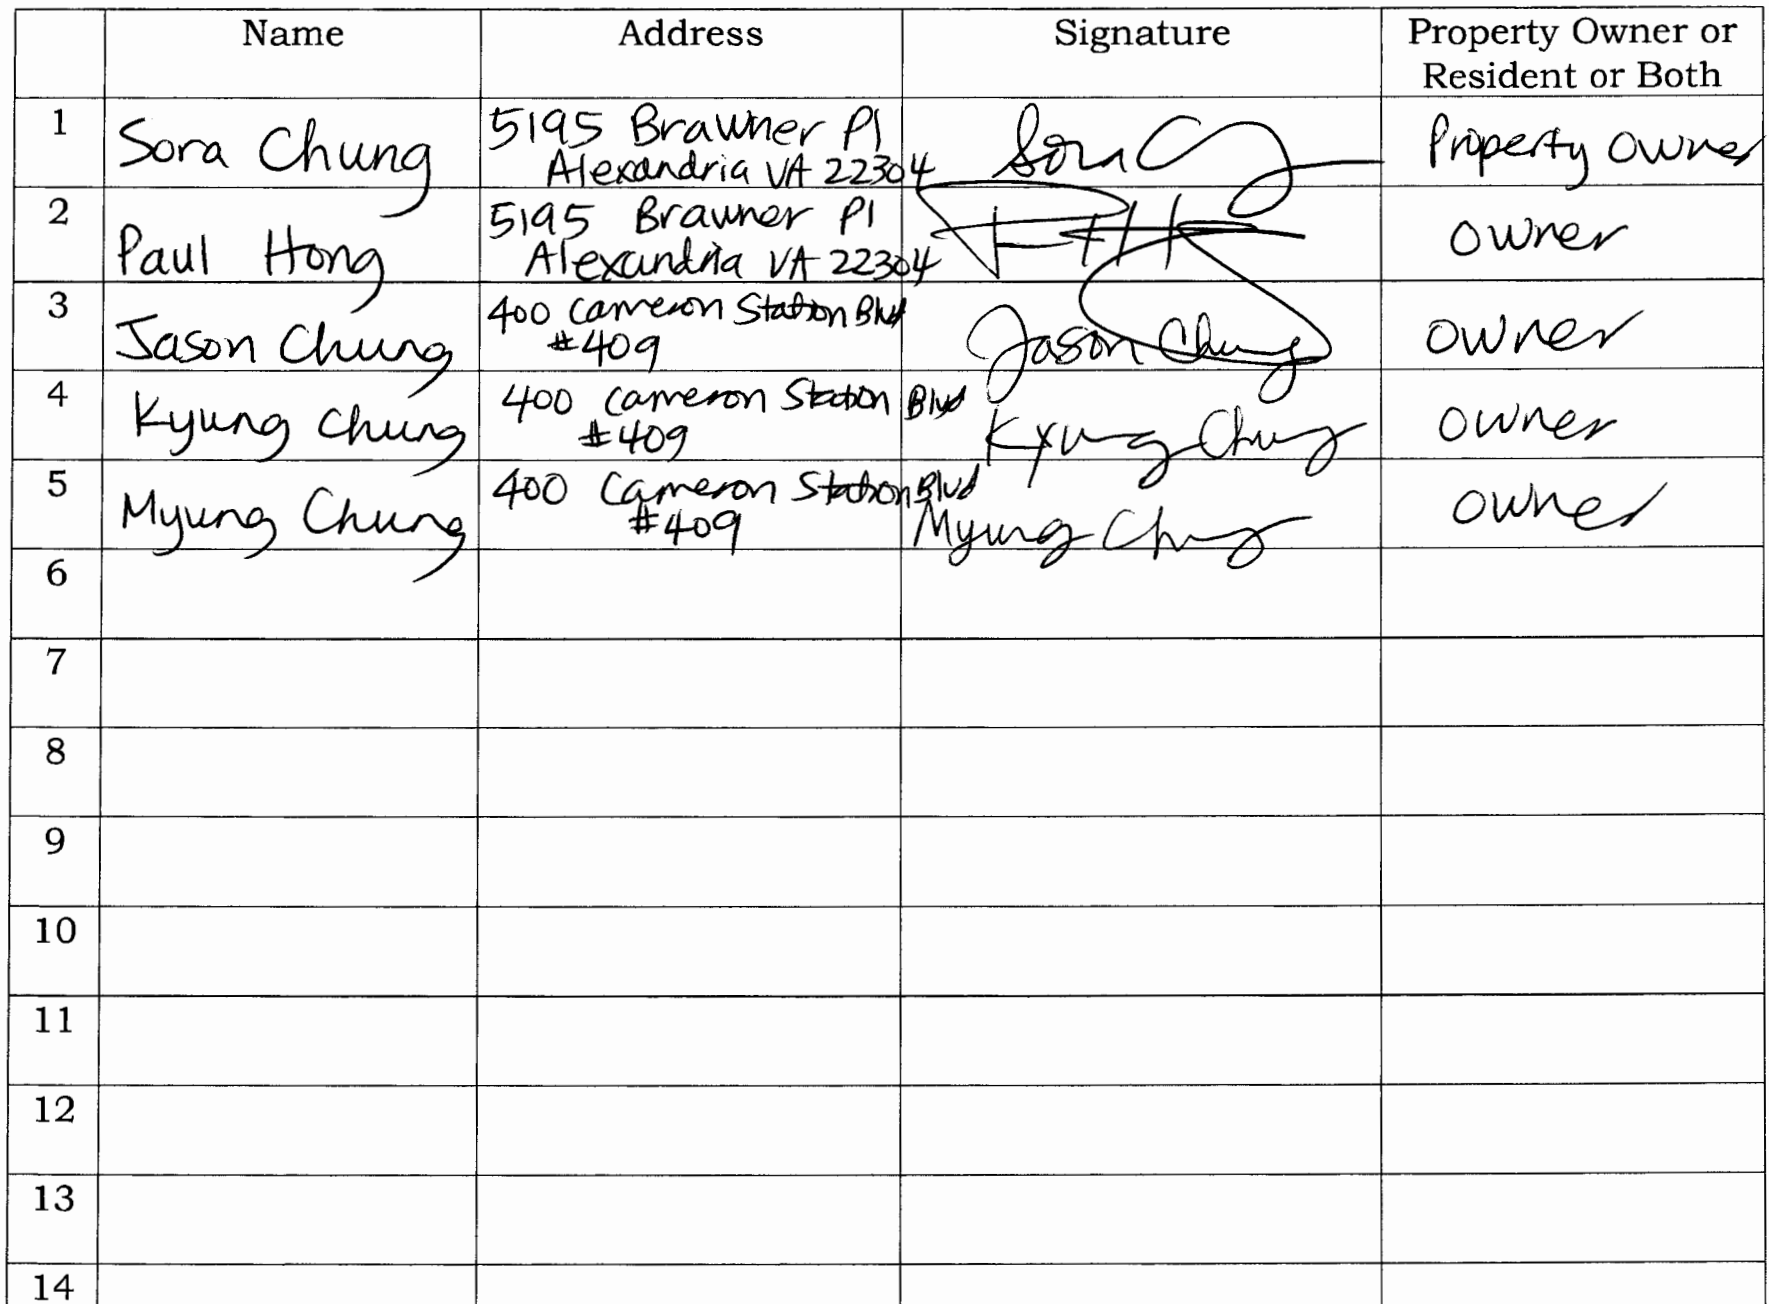 Name Address Signature Property Owner or
Resident or Both
1 Sora Chung 5195 Brawner Pl Sora C Property Owner
Alexandria VA 22304
2 Paul Hong 5195 Brawner Pl owner
Alexandria VA 22304
3 Jason Chung 400 Cameron Station Blvd Jason Chung owner
#409
4 Kyung Chung 400 Cameron Station Blvd Kyung Chung owner
#409
5 Myung Chung 400 Cameron Station Blvd Myung Chung owner
#409
6
7
8
9
10
11
12
13
14